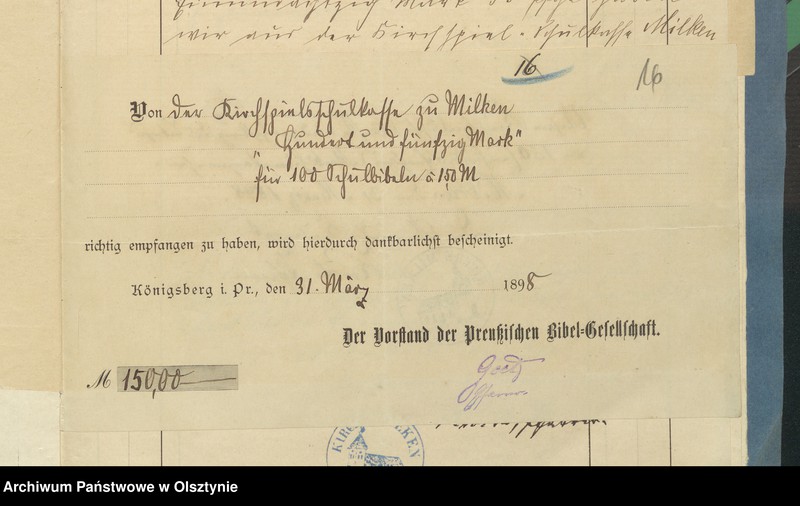 wir aus der Kirchspiel-Schulkasse Milken
16 16
Von der Kirchspielsschulkasse zu Milken
„Hundert und fünfzig Mark"
für 100 Schulbibeln a 1,50 M
richtig empfangen zu haben, wird hierdurch dankbarlichst bescheinigt.
Königsberg i. Pr., den 31. März 1898
Der Vorstand der Preußischen Bibel-Gesellschaft.
M 150,00
Archiwum Państwowe w Olsztynie